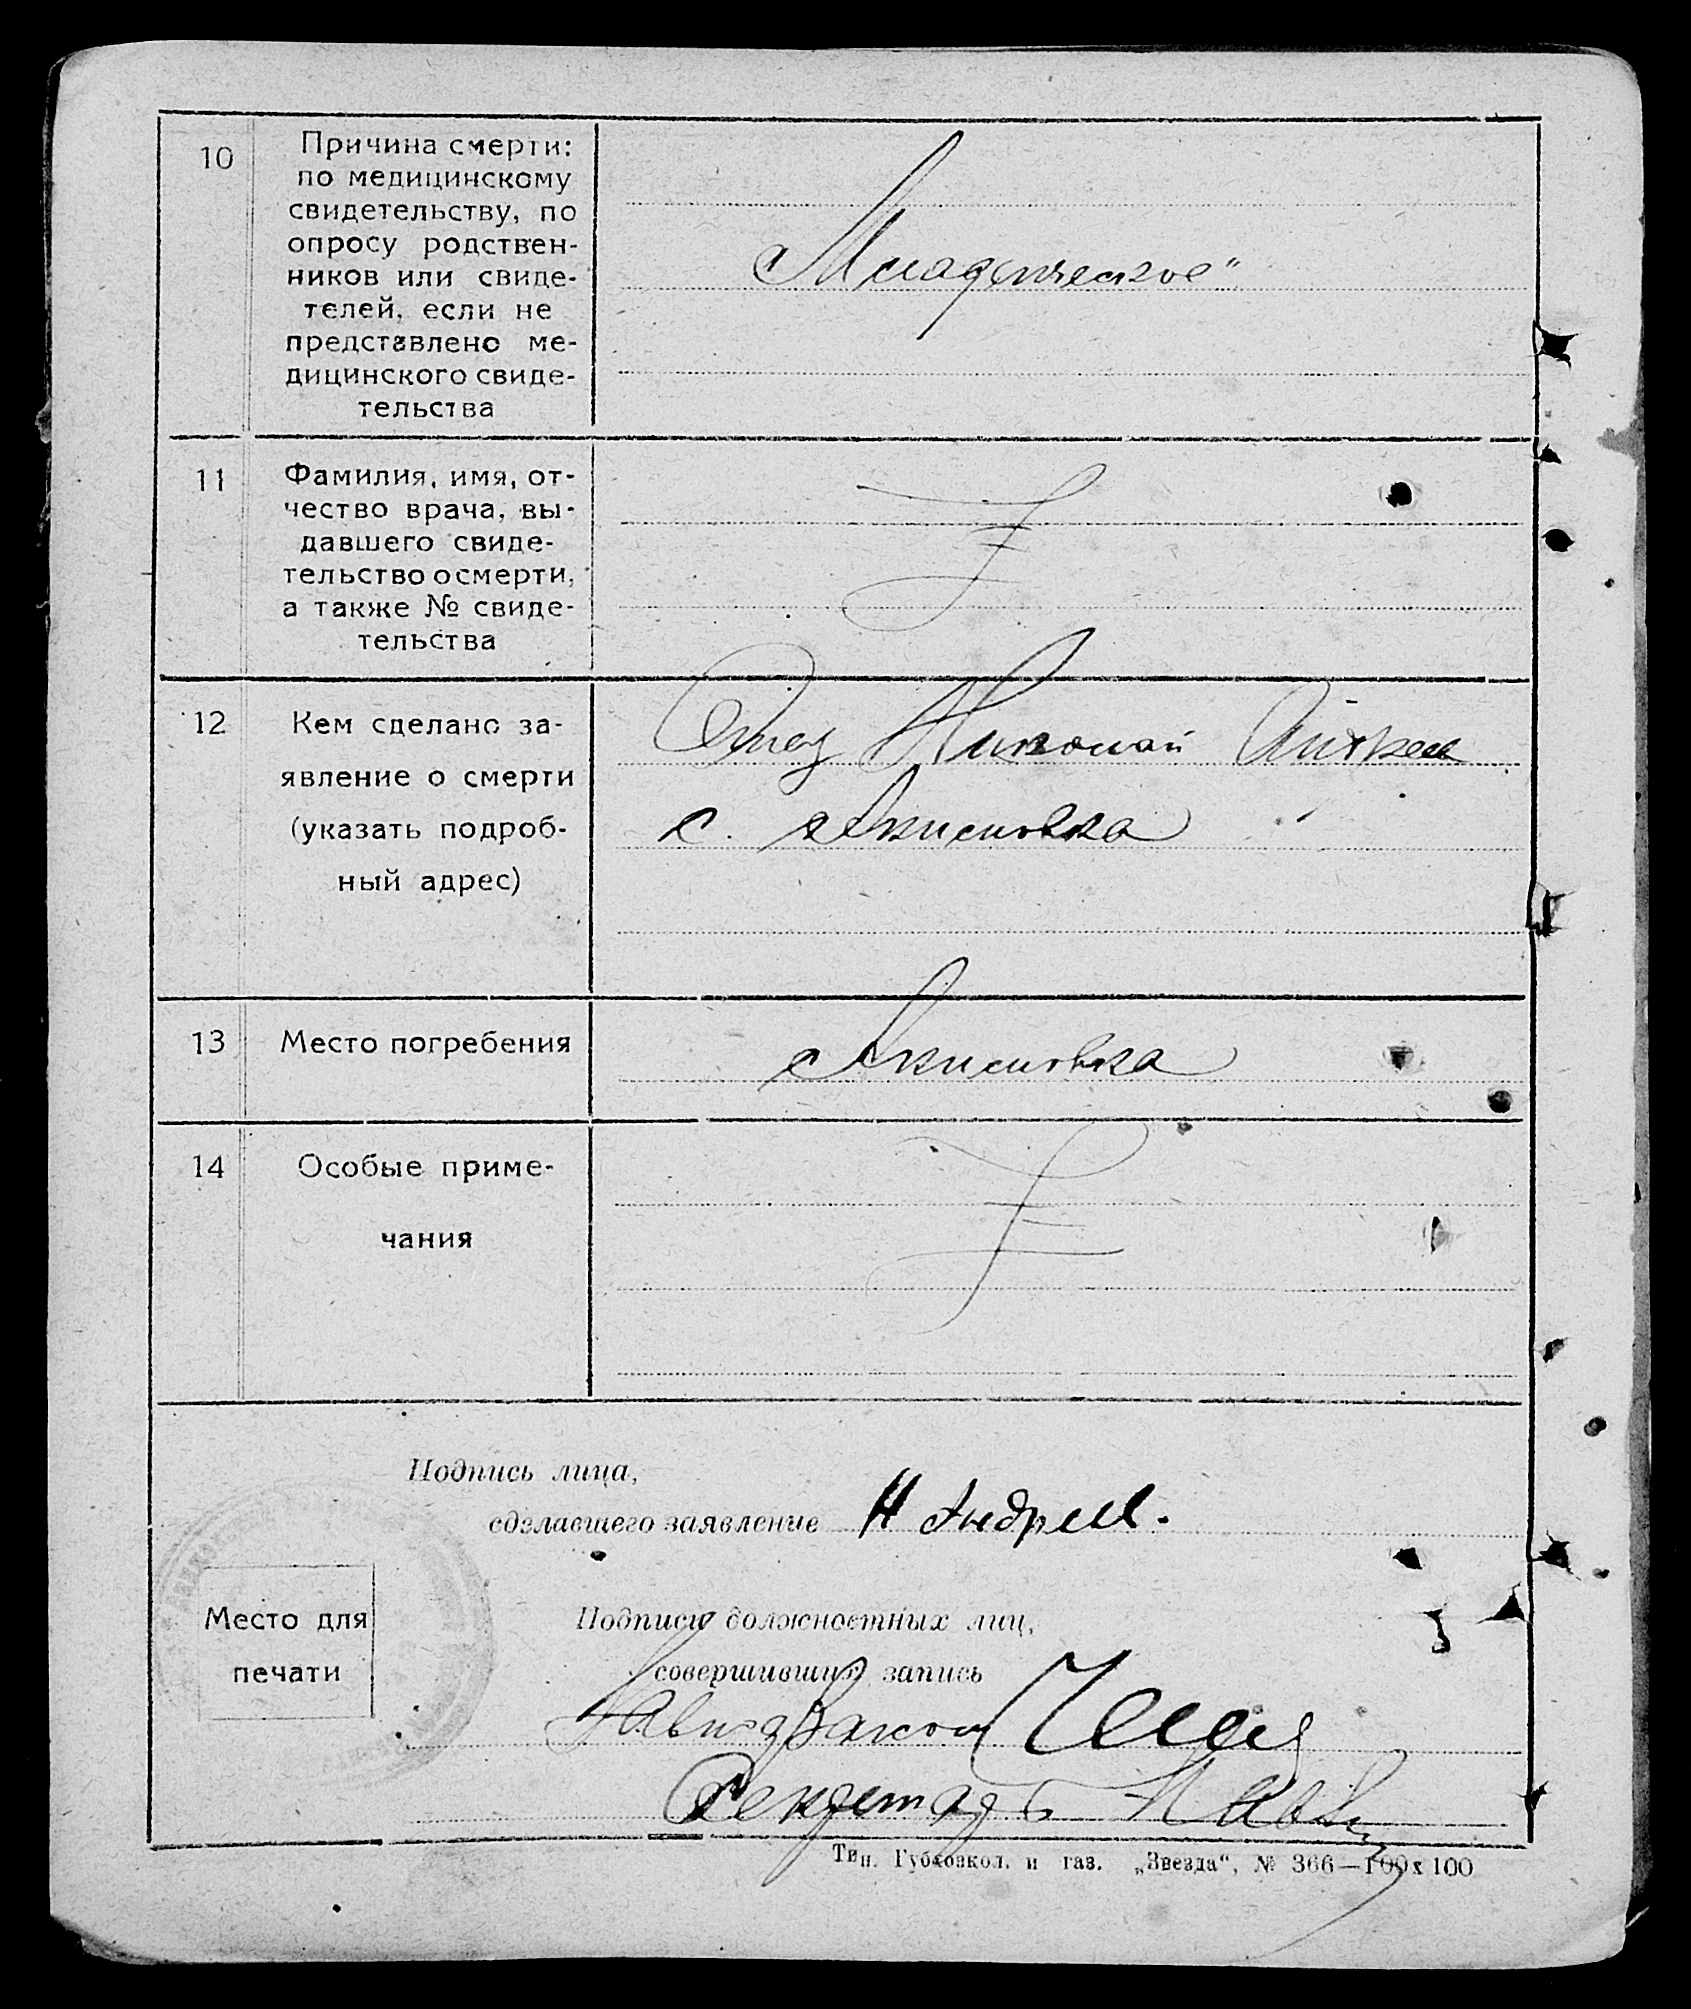 10
Причина смерти:
по медицинскому
свидетельству, по
опросу родствен-
ников или свиде-
телей, если не
представлено ме-
дицинского свиде-
тельства
Младенческое"
11
Фамилия, имя, от-
чество врача, вы-
давшего свиде-
тельство о смерти,
а также № свиде-
тельства
12
Кем сделано за-
явление о смерти
(указать подроб-
ный адрес)
Отец Николай
с.
13
Место погребения
14
Особые приме-
чания
Подпись лица,
сделавшего заявление Н Андреев.
Место для
печати
Подписи должностных лиц,
совершивших запись
Секретарь
Тип. Губковкол. и газ. „Звезда", № 366—100х100